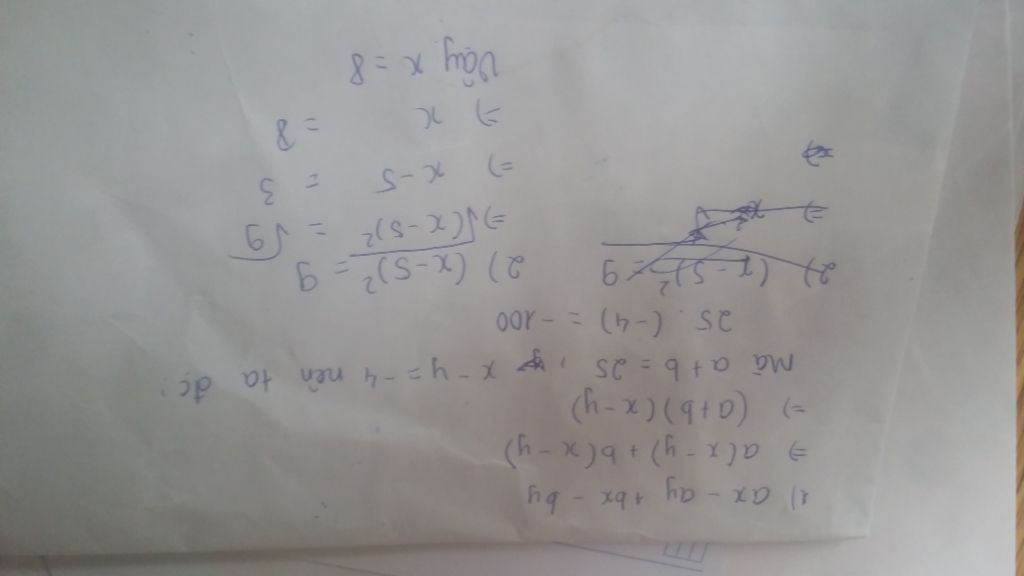 1) ax - ay + bx - by
=> a(x - y) + b(x - y)
=> (a+b)(x-y)
Mà a+b = 25, x - y = -4 nên ta đc:
25. (-4) = -100
2) (x - 5)² = 9
=>
=>
2) (x-5)² = 9
=> √(x-5)² = √9
=> x-5 = 3
=> x = 8
Vậy x = 8